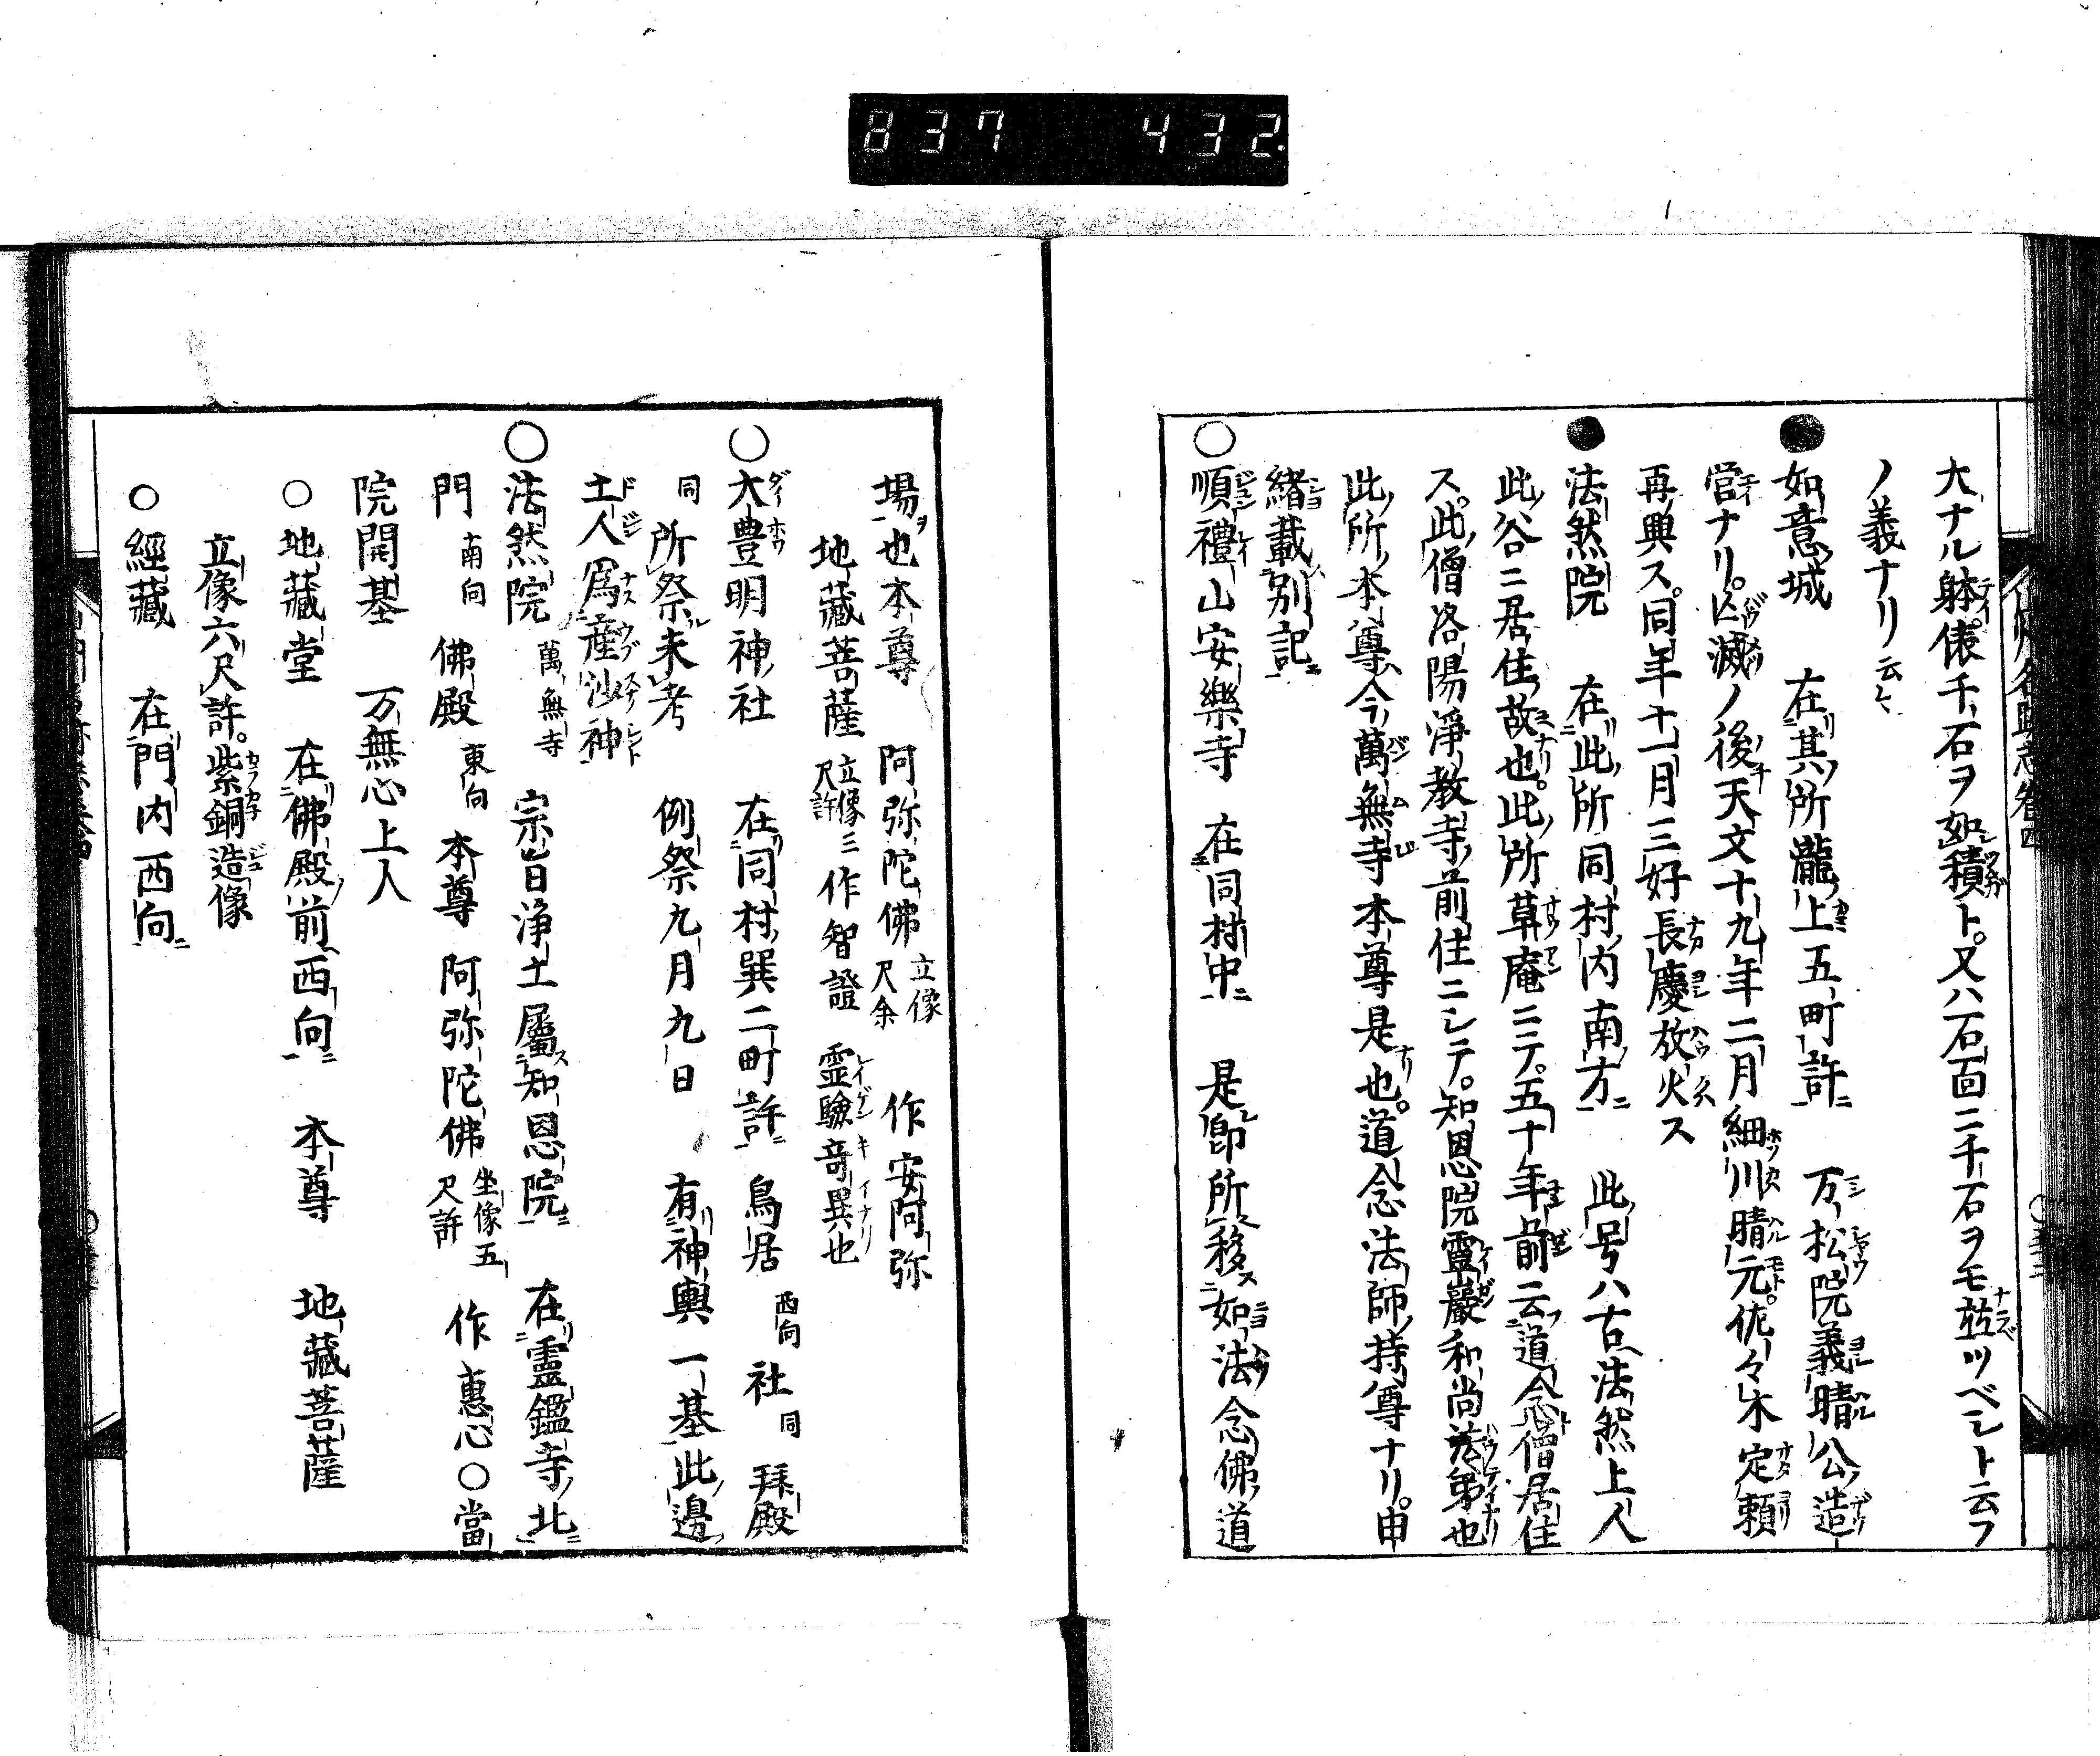 837 432
大ナル躰。俵千石ヲ如積ト。又八石面ニ千石ヲモ竝ツベシト云フ
ノ義ナリ云々
●如意城 在其所瀧上五町許 万松院義晴公造
営ナリ。亡滅ノ後天文十九年二月細川晴元。佐々木定頼
再興ス。同年十一月三好長慶放火ス
●法然院 在此所同村内南方 此号ハ古法然上人
此谷ニ居住故也。此所草庵ニテ。五十年前云道念僧居住
ス。此僧洛陽淨教寺前住ニシテ。知恩院靈巖和尚法弟也
此所本尊今萬無寺本尊是也。道念法師持尊ナリ。由
緒載別記
○順禮山安樂寺 在同村中 是卽所移如法念佛道
場也本尊 阿弥陀佛 立像尺余 作安阿弥
地藏菩薩 立像三尺許 作智證 霊験奇異也
○大豊明神社 在同村巽二町許 鳥居 西向 社 同 拜殿
同 所祭未考 例祭九月九日 有神輿一基此邊
土人爲産沙神
○法然院 萬無寺 宗旨浄土屬知恩院 在靈鑑寺北
門 南向 佛殿 東向 本尊 阿弥陀佛 坐像五尺許 作惠心○當
院開基 万無心上人
○地藏堂 在佛殿前西向 本尊 地藏菩薩
立像六尺許。紫銅造像
○經藏 在門内西向